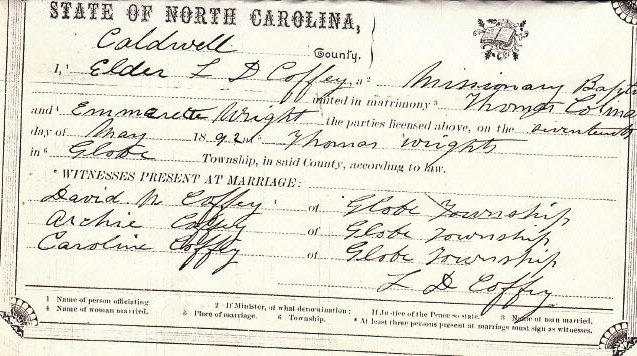 STATE OF NORTH CAROLINA,
Caldwell County.
I, ¹ Elder L D Coffey, a ² Missionary Bapt
united in matrimony ³ Thomas Colma
and ⁴ Emmarette Wright the parties licensed above, on the seventeenth
day of May 1892 at ⁵ Thomas Wrights
in ⁶ Globe Township, in said County, according to law.
* WITNESSES PRESENT AT MARRIAGE:
David N Coffey of Globe Township
Archie Coffey of Globe Township
Caroline Coffey of Globe Township
L D Coffey
1 Name of person officiating. 2 If Minister, of what denomination; If Justice of the Peace so state. 3 Name of man married.
4 Name of woman married. 5 Place of marriage. 6 Township. * At least three persons present at marriage must sign as witnesses.